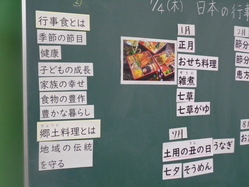 7/4(木) 日本の行事
行事食とは
季節の節目
健康
子どもの成長
家族の幸せ
食物の豊作
豊かな暮らし
郷土料理とは
地域の伝統
を守る
1月
正月
おせち料理
雑煮
七草
七草がゆ
7月
土用の丑の日
うなぎ
七夕
そうめん
節分
節分
恵方
8月
お